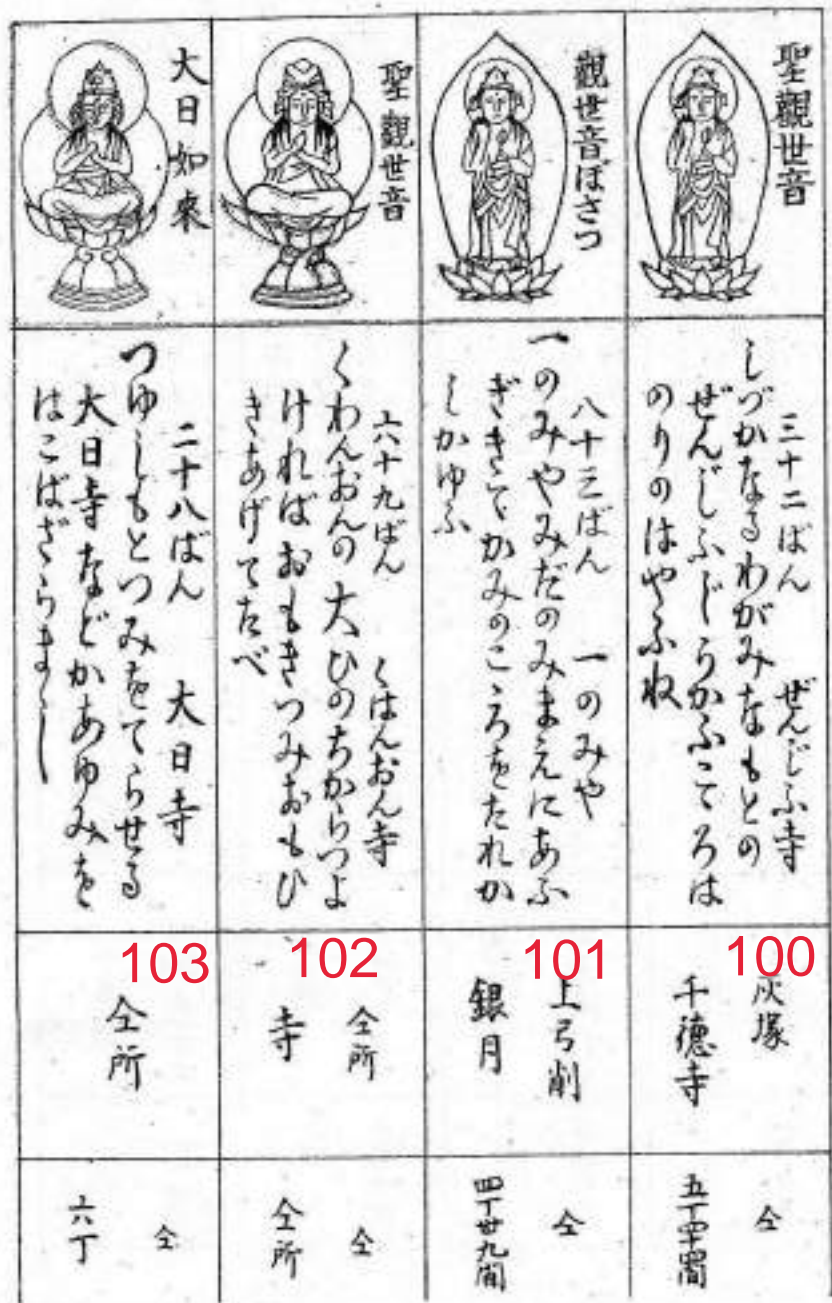 聖觀世音
三十二ばん　ぜんじふ寺
しづかなるわがみなもとの
ぜんじふじうかふこゝろは
のりのはやふね
100
灰塚
千德寺
仝
五丁四十間
觀世音ぼさつ
八十三ばん　一のみや
一のみやみだのみまえにあふ
ぎきてかみのこゝろをたれか
しかゆふ
101
上弓削
銀月
仝
四丁廿九間
聖觀世音
六十九ばん　くはんおん寺
くわんおんの大ひのちからつよ
ければおもきつみおもひ
きあげてたべ
102
仝所
寺
仝
仝所
大日如來
二十八ばん　大日寺
つゆしもとつみをてらせる
大日寺などかあゆみを
はこばざらまし
103
仝所
仝
六丁